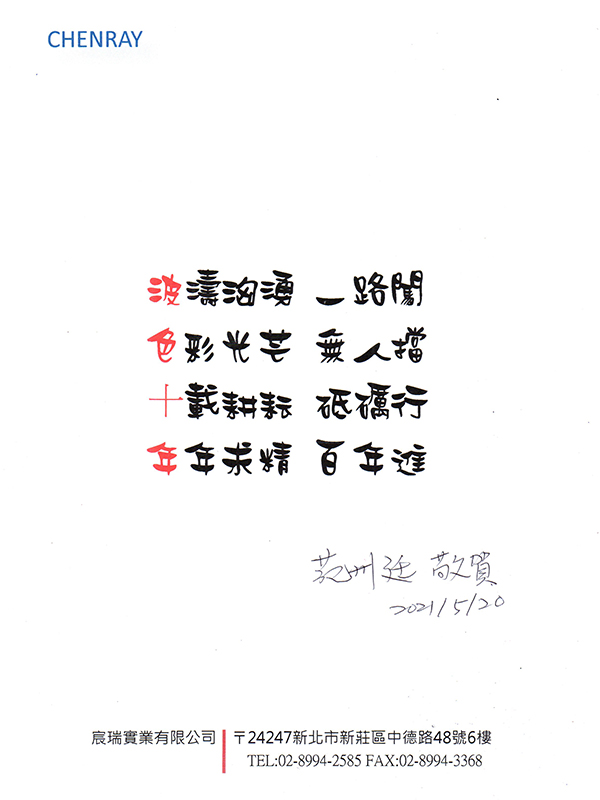 CHENRAY
波濤洶湧 一路闖
色彩光芒 無人擋
十載耕耘 砥礪行
年年求精 百年進
范洲廷 敬賀
2021/5/20
宸瑞實業有限公司 〒24247新北市新莊區中德路48號6樓
TEL:02-8994-2585 FAX:02-8994-3368